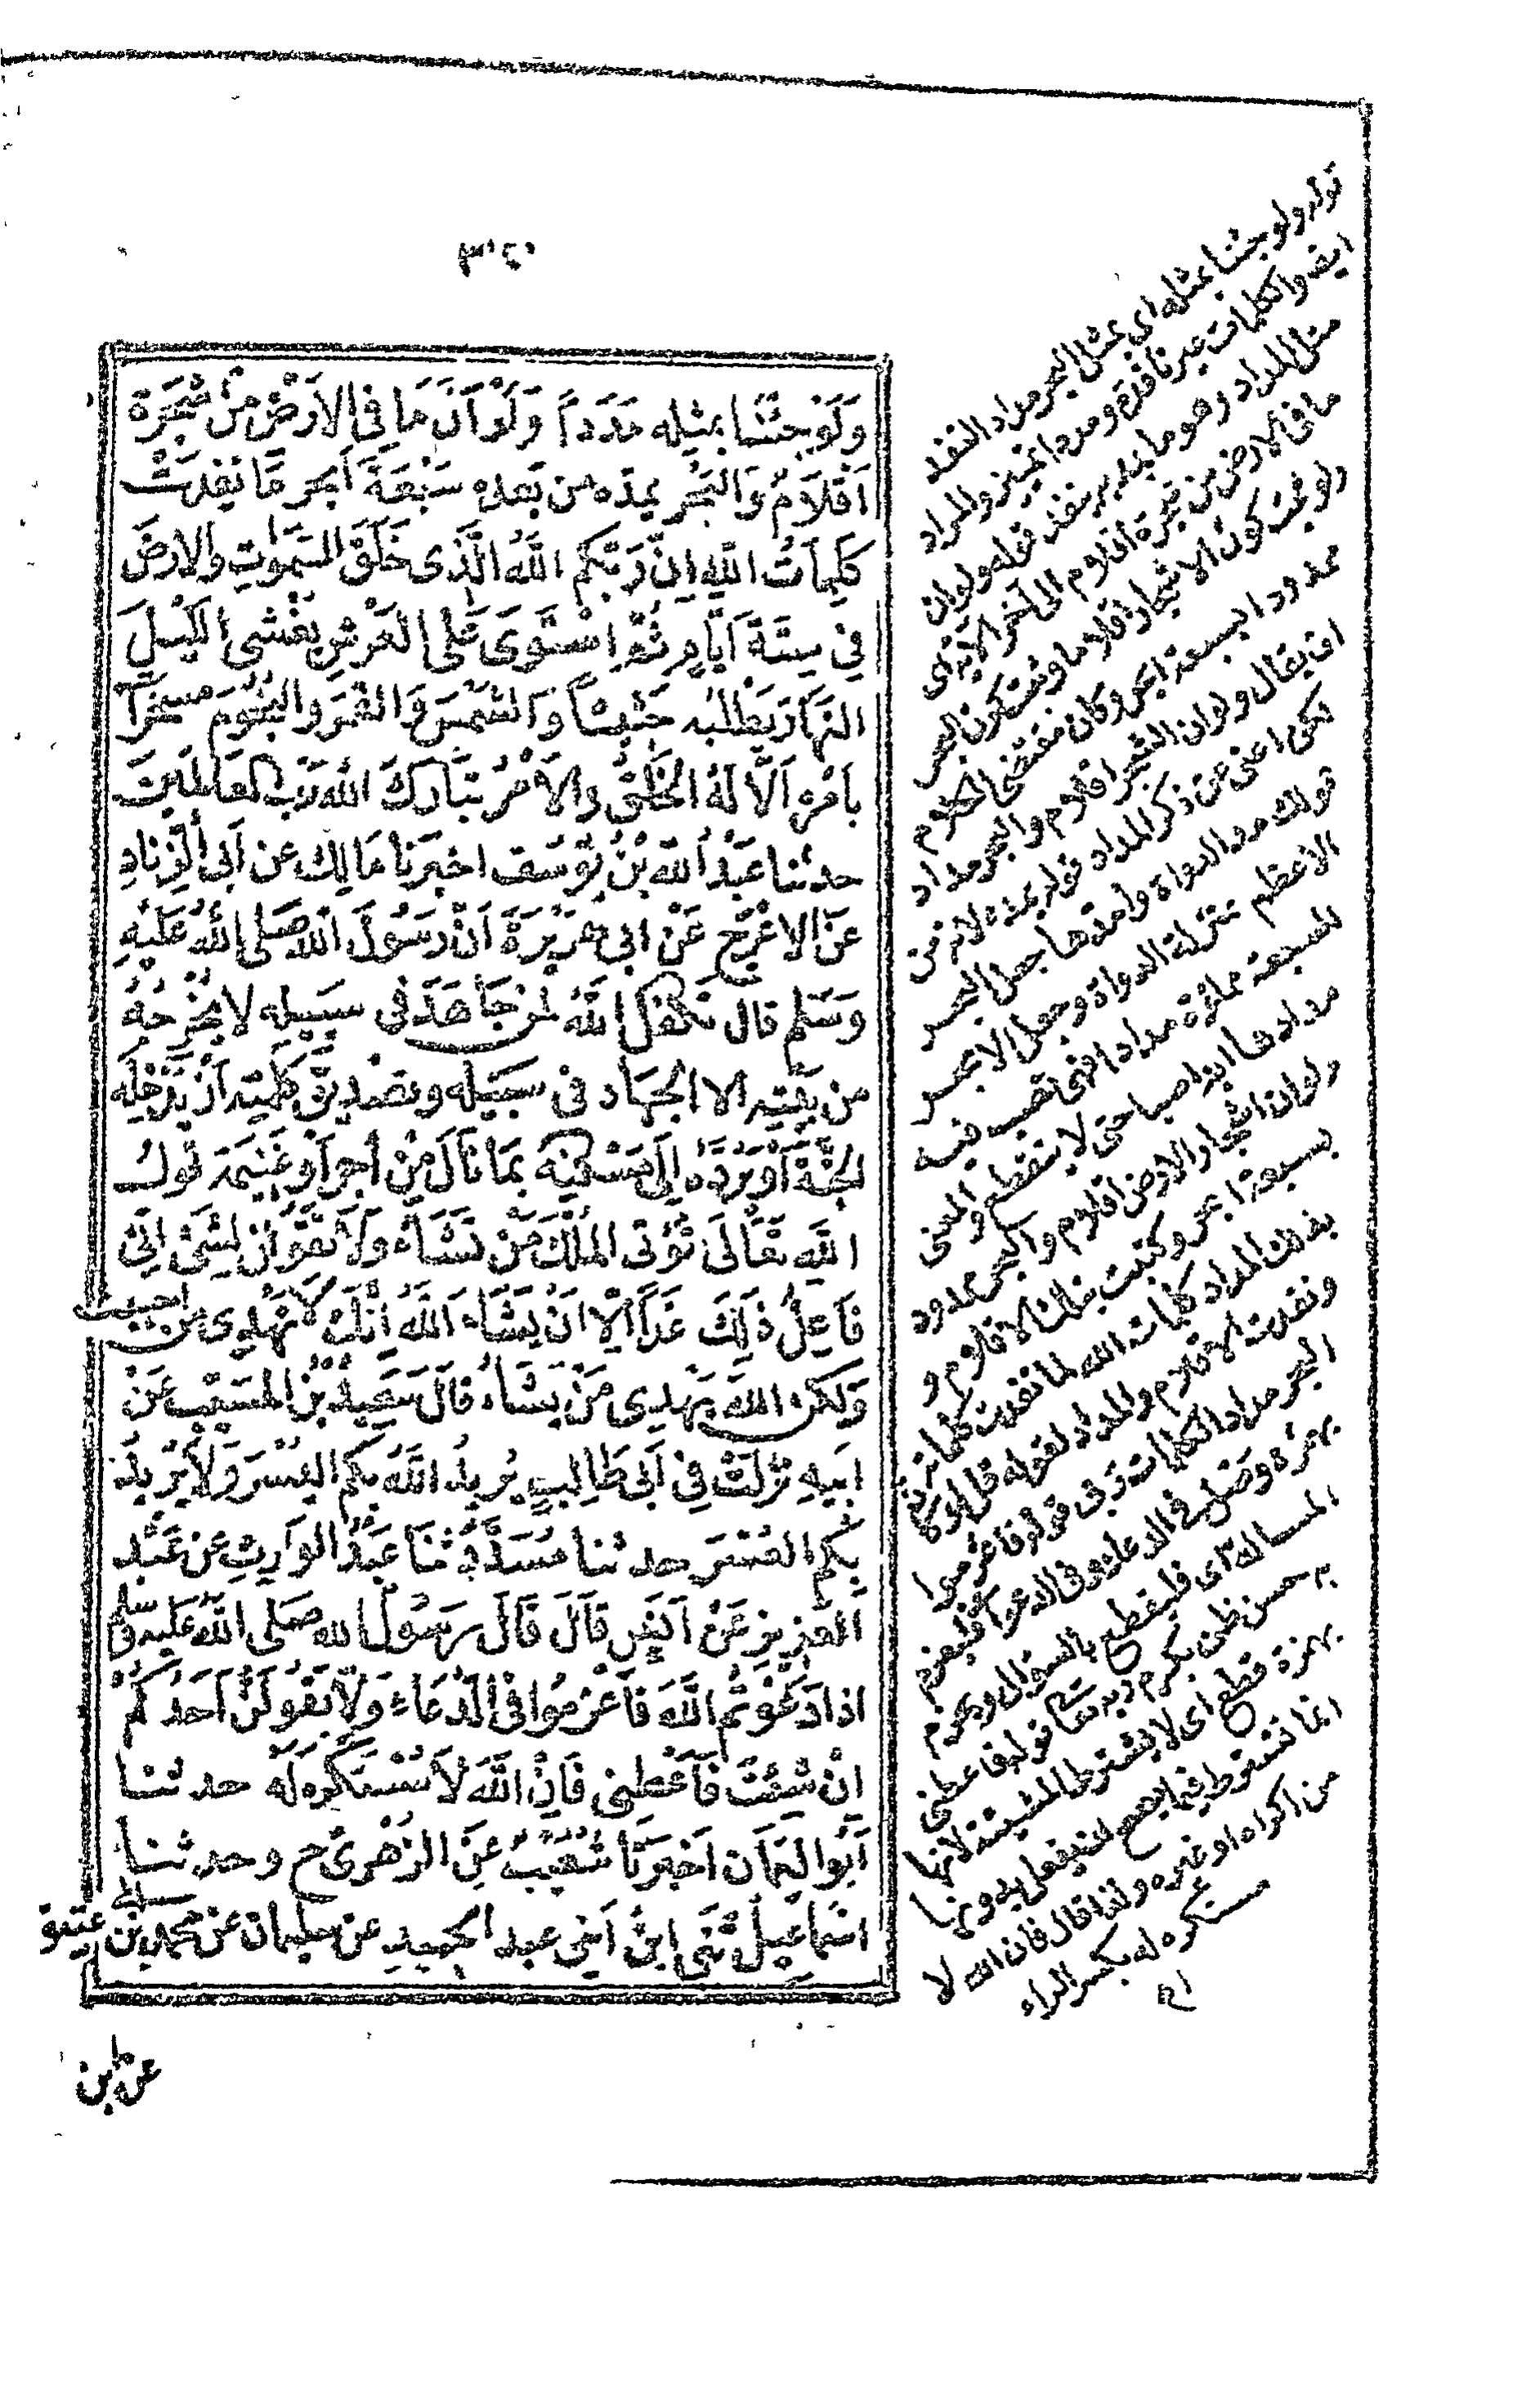 وَلَوْ جِئْنَا بِمِثْلِه مَدَداً وَلَوْ اَنَّ مَا فِى الاَرْضِ مِنْ شَجَرَة
اَقْلاَمٌ وَالبَحْرُ يمدّه من بَعْدِه سَبْعَةُ اَبحر مَا نَفِدَتْ
كَلِمَاتُ اللهِ اِنَّ رَبَّكم اللهُ الَّذِى خَلَقَ السَّمٰوٰتِ والارضَ
فِى سِتَّةِ اَيَّامٍ ثُمَّ اسْتَوَى عَلى العَرْشِ يُغْشِى الَّيْلَ
النَّهَارَ يَطْلُبُه حَثِيْثاً وَالشَّمْسَ وَالقَمَرَ والنُّجُوْمَ مسخّراتٍ
بِاَمْرِه اَلاَ لَهُ الخَلْقُ والاَمْرُ تَبَارَكَ الله رَبّ العَالَمِيْنَ
حدثنا عَبْدُ اللهِ بْنُ يُوْسُف اخبَرَنا مَالِك عن اَبى الزِّنادِ
عَنِ الاعْرَجِ عَنْ ابى هرَيْرَةَ اَنَّ رَسُوْلَ الله صَلى اللهُ عَلَيْهِ
وَسَلم قال تَكَفَّلَ اللهُ لمن جَاهَدَ فى سَبِيلِه لا يُخْرِجُهُ
من بَيْتِه الا الجهَاد فى سَبِيْلِه وتصْدِيْق كَلِمَتِه اَنْ يُدْخِلَه
الجَنَّةَ اَوْ يَرُدَّهُ اِلَى مَسْكَنِه بمَا نَالَ مِنْ اَجر اَوْ غَنِيمَة قوله
اللهِ تَعَالَى تُؤتِى المُلْكَ مَنْ تَشَاءُ وَلاَ تَقُوْلَنَّ لِشَىْء اِنِّى
فَاعِلٌ ذَلِكَ غَدًا اِلاَّ اَنْ يَشَاءَ اللهُ اِنَّكَ لاَ تَهْدِى مَن احببت
وَلَكِنَّ اللهَ يَهْدِى مَنْ يَشَاءُ قَالَ سَعِيْدُ بْنُ المُسَيّب عَنْ
ابِيهِ نَزَلَتْ فِى اَبى طَالِبٍ يُرِيدُ اللهُ بِكم اليُسْرَ وَلاَ يُرِيدُ
بِكم العُسْرَ حدثنا مُسَدَّدٌ ثنَا عَبْدُ الوَارِثِ عَن عَبْد
العَزِيزِ عَنْ اَنَسٍ قَالَ قَالَ رَسُوْل الله صَلى اللهُ عَلَيه وسلم
اذا دَعَوْتُم اللهَ فَاعْزِمُوا فى الدُّعَاءِ وَلاَ يَقُوْلَنَّ اَحَدُكُمْ
اِنْ شِئْتَ فَاَعْطِنِى فَاِنَّ اللهَ لاَ مُسْتَكْرِهَ لَهُ حدثنا
اَبُو اليَمَان اَخْبَرَنَا شُعَيْبٌ عَنِ الزهْرىِّ ح وحدثنا
اسْمَاعِيلُ ثَنِى اَخِى عبد الحميدِ عن سليمان عن محمد بن اَبى عتيق
عن ابن
قوله ولو جئنا بمثله اى بمثل البحر مدادا لنفد
ايضا والكلمات غير نافدة ومددا تمييز والمراد
مثل المداد وهو ما يمد به ينفد قوله ولو ان
ما فى الارض من شجرة اقلام الى آخر الاية اى
ولو ثبت كون الاشجار اقلاما وثبت كون البحر
ممدودا بسبعة ابحر وكان مقتضى الكلام
ان يقال ولو ان الشجر اقلام والبحر مداد
لكن اغنى عن ذكر المداد قوله يمده لانه من
قولك مد الدواة وامدها جعل البحر
الاعظم بمنزلة الدواة وجعل الابحر
السبعة مملؤة مدادا فهى تصب فيه
مدادها ابدا صبا حتى لا ينقطع والمعنى
ولو ان اشجار الارض اقلام والبحر ممدود
بسبعة ابحر وكتبت بتلك الاقلام و
بذلك المداد كلمات الله لما نفدت كلماته
ونفدت الاقلام والمداد لقوله قل لو كان
البحر مدادا لكلمات ربى قوله فاعزموا
بهمزة وصل فى الدعاء وفى الدعوات فليعزم
المسالة اى فليقطع بالسؤال ويجزم
به حسن ظن بكرم ربه تعالى قوله فاعطنى
بهمزة قطع اى لا يشترط المشيئة لانها
انما تشترط فيما يصح ان يفعل بدونها
من اكراه او غيره ولذا قال فان الله لا
مستكره له بكسر الراء